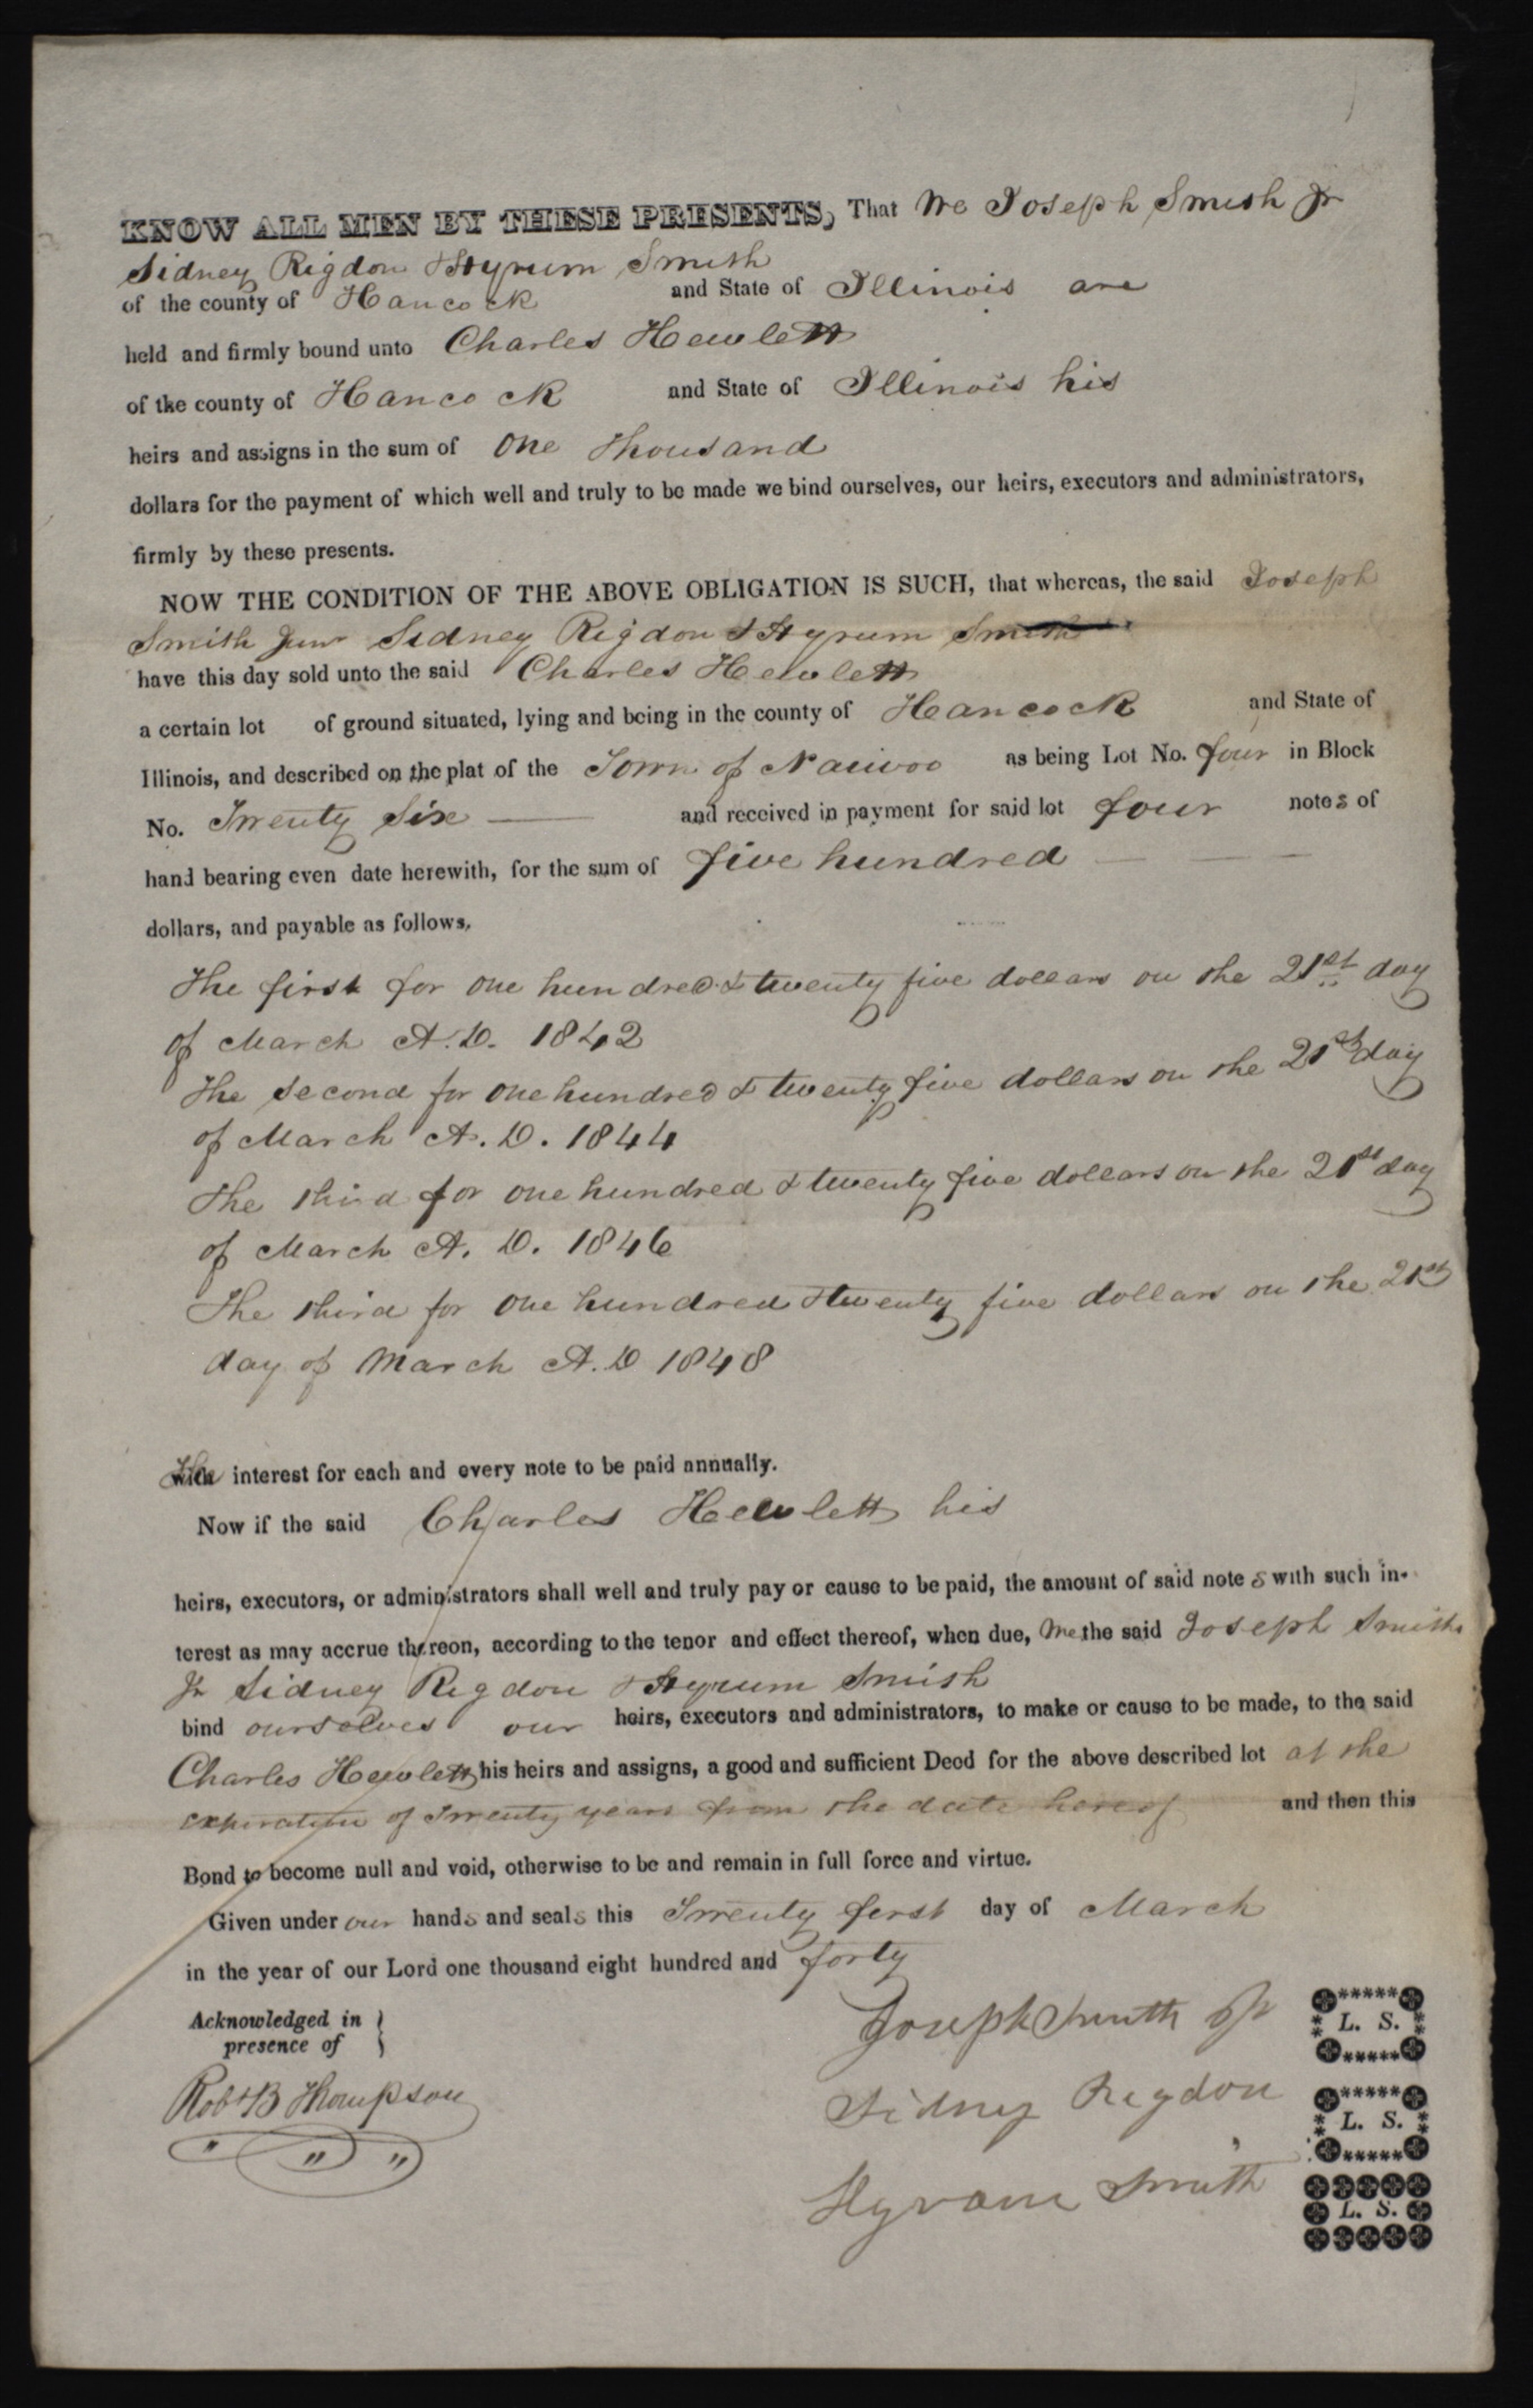 KNOW ALL MEN BY THESE PRESENTS, That We Joseph Smith Jr
Sidney Rigdon & Hyrum Smith
of the county of Hancock and State of Illinois are
held and firmly bound unto Charles Hewlett
of the county of Hancock and State of Illinois his
heirs and assigns in the sum of One Thousand
dollars for the payment of which well and truly to be made we bind ourselves, our heirs, executors and administrators,
firmly by these presents.
NOW THE CONDITION OF THE ABOVE OBLIGATION IS SUCH, that whereas, the said Joseph
Smith Junr Sidney Rigdon & Hyrum Smith
have this day sold unto the said Charles Hewlett
a certain lot of ground situated, lying and being in the county of Hancock and State of
Illinois, and described on the plat of the Town of Nauvoo as being Lot No. four in Block
No. Twenty Six — and received in payment for said lot four notes of
hand bearing even date herewith, for the sum of five hundred — — —
dollars, and payable as follows.
The first for one hundred & twenty five dollars on the 21st day
of March A.D. 1842
The second for one hundred & twenty five dollars on the 21st day
of March A.D. 1844
The third for one hundred & twenty five dollars on the 21st day
of March A.D. 1846
The third for one hundred & twenty five dollars on the 21st
day of March A.D 1848
interest for each and every note to be paid annually.
Now if the said Charles Hewlett his
heirs, executors, or administrators shall well and truly pay or cause to be paid, the amount of said notes with such in-
terest as may accrue thereon, according to the tenor and effect thereof, when due, We the said Joseph Smith
Jr Sidney Rigdon & Hyrum Smith
bind ourselves our heirs, executors and administrators, to make or cause to be made, to the said
Charles Hewlett his heirs and assigns, a good and sufficient Deed for the above described lot at the
expiration of Twenty years from the date hereof and then this
Bond to become null and void, otherwise to be and remain in full force and virtue.
Given under our hands and seals this Twenty first day of March
in the year of our Lord one thousand eight hundred and forty
Acknowledged in
presence of
Robt B Thompson
Joseph Smith Jr L. S.
Sidney Rigdon L. S.
Hyrum Smith L. S.